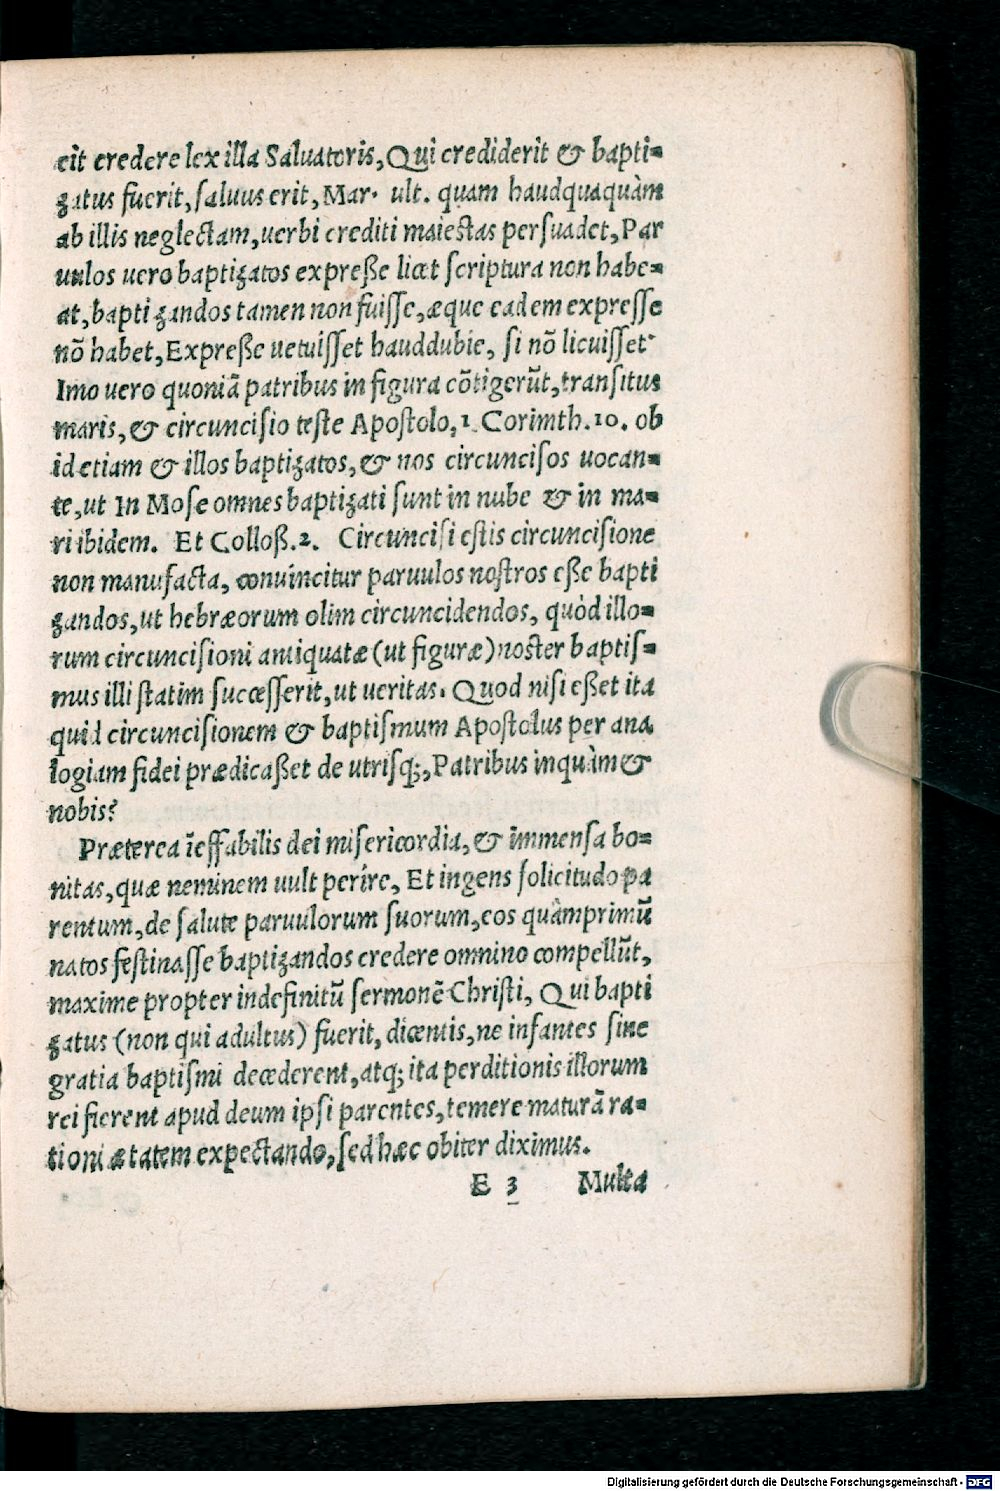 cit credere lex illa Saluatoris, Qui crediderit & bapti-
zatus fuerit, saluus erit, Mar. ult. quam haudquaquàm
ab illis neglectam, uerbi crediti maiestas persuadet, Par
uulos uero baptizatos expreße licet scriptura non habe-
at, baptizandos tamen non fuisse, æque eadem expresse
nō habet, Expreße uetuisset hauddubie, si nō licuisset.
Imo uero quoniā patribus in figura cōtigerūt, transitus
maris, & circuncisio teste Apostolo, 1. Corimth. 10. ob
id etiam & illos baptizatos, & nos circuncisos uocan-
te, ut In Mose omnes baptizati sunt in nube & in ma-
ri ibidem. Et Colloß. 2. Circuncisi estis circuncisione
non manufacta, conuincitur paruulos nostros eße bapti
zandos, ut hebræorum olim circuncidendos, quòd illo-
rum circuncisioni antiquatæ (ut figuræ) noster baptis-
mus illi statim successerit, ut ueritas. Quod nisi eßet ita
quid circuncisionem & baptismum Apostolus per ana
logiam fidei prædicaßet de utrisq;, Patribus inquàm &
nobis?
Præterea īeffabilis dei misericordia, & immensa bo-
nitas, quæ neminem uult perire, Et ingens solicitudo pa
rentum, de salute paruulorum suorum, eos quàmprimū
natos festinasse baptizandos credere omnino compellūt,
maxime propter indefinitū sermonē Christi, Qui bapti
zatus (non qui adultus) fuerit, dicentis, ne infantes sine
gratia baptismi decederent, atq; ita perditionis illorum
rei fierent apud deum ipsi parentes, temere maturā ra-
tioni ætatem expectando, sed hæc obiter diximus.
E 3 Multa
Digitalisierung gefördert durch die Deutsche Forschungsgemeinschaft - DFG